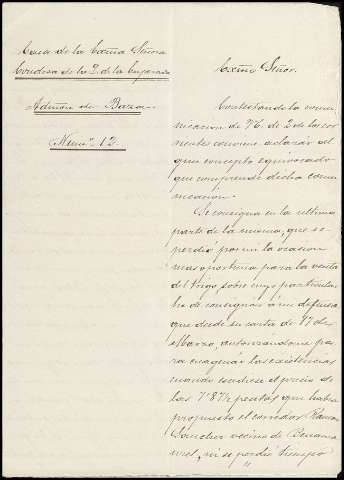 Casa de la Exma Señora
Condesa de la P. de la
Admon de Baza
Num.º 12
Exmo Señor.
Contestando la comu-
nicacion de V.E. de 2 de los cor-
rientes conviene aclarar el
que concepto equivocado
que comprende dicha comu-
nicación.
Se consigna en la ultima
parte de la misma, que se
perdió por mi la ocasion
mas oportuna para la venta
del trigo, sobre cuyo particular
he de consignar á mi defensa
que desde su carta de 17 de
Marzo, autorizándome pa-
ra enagenar las existencias
cuando tuviera el precio de
las 7'87½ pesetas que habia
propuesto el corredor Ramon
Sánchez vecino de Benama-
urel, ni se perdió tiempo